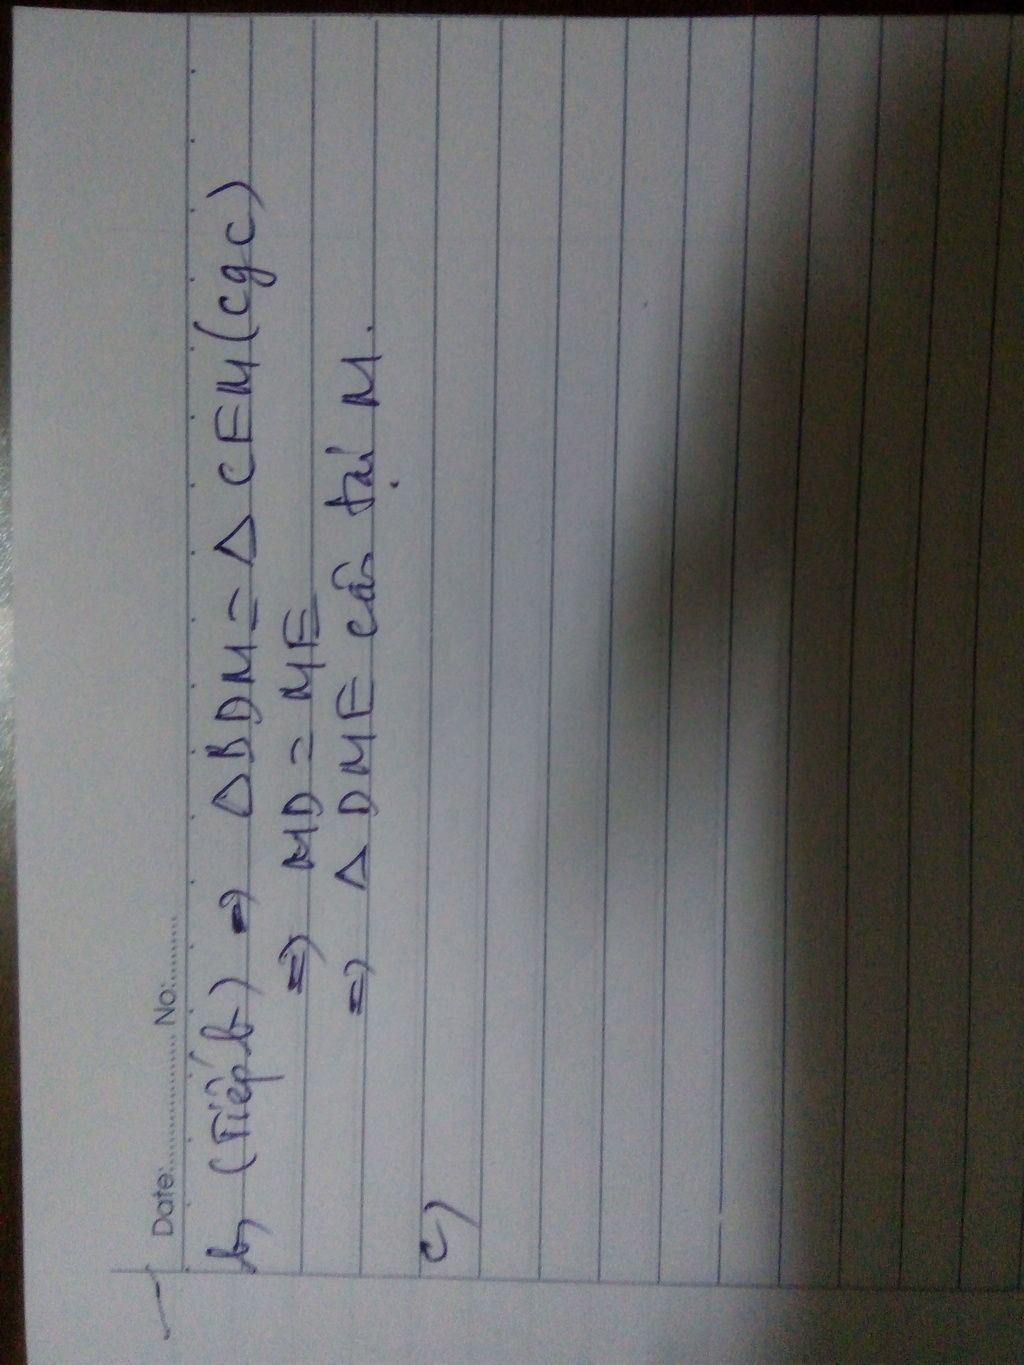 Date:................ No:..........
b, (Tiếp b) => ΔBDM = Δ CEM (cgc)
=> MD = ME
=> Δ DME cân tại M.
c)